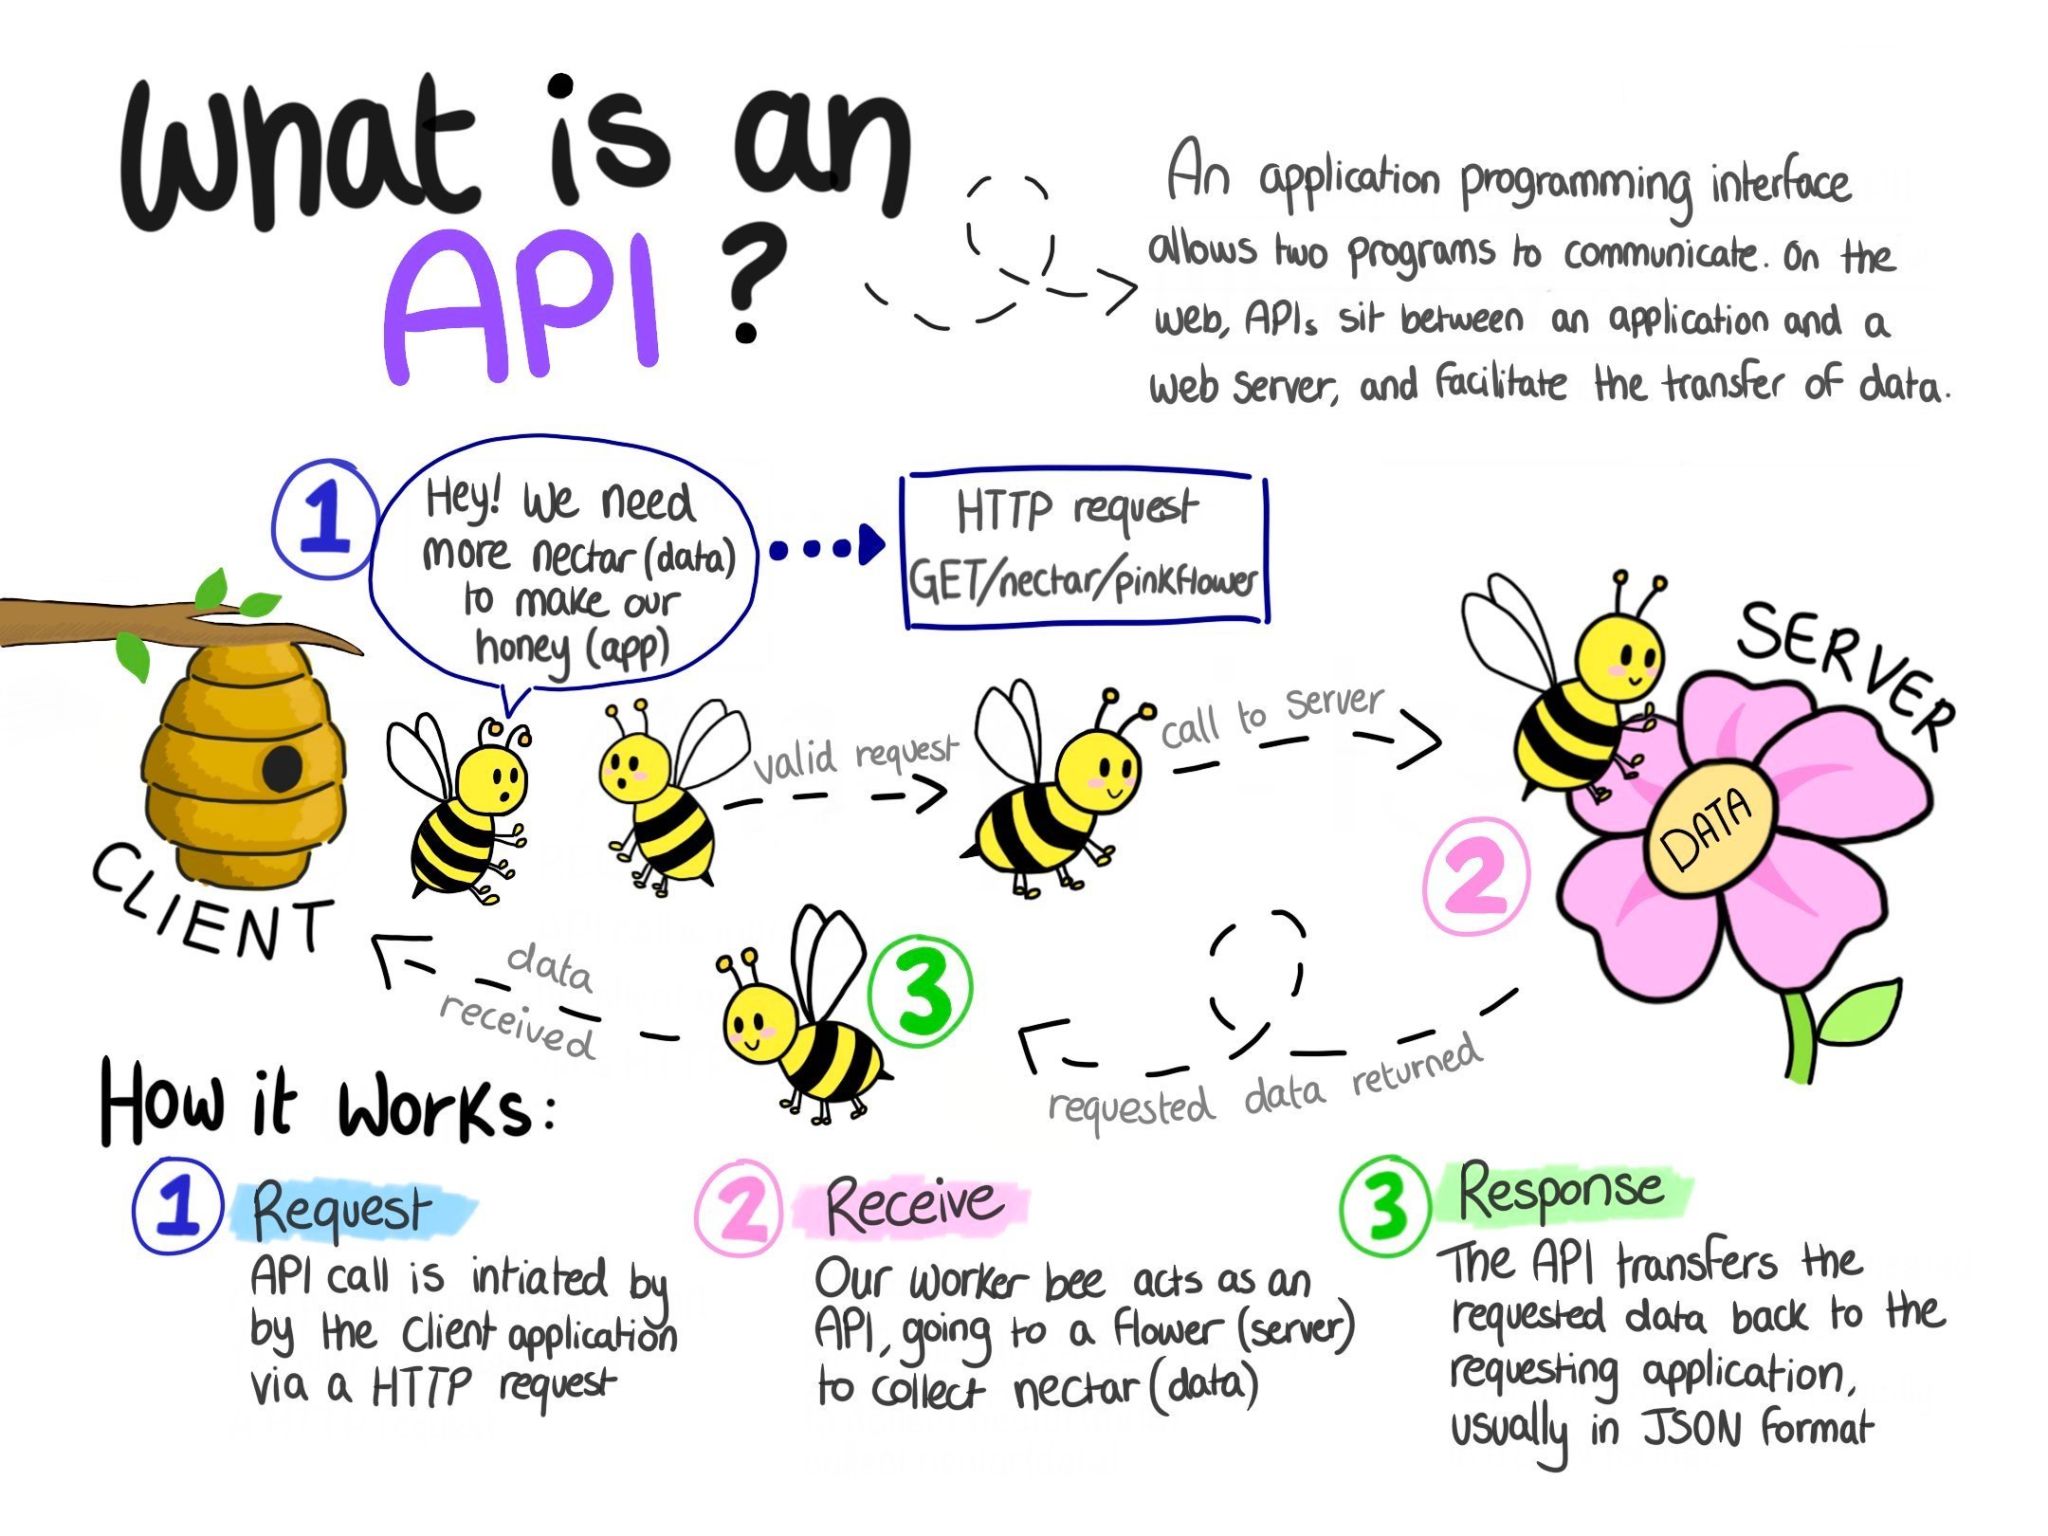 What is an
API ?
An application programming interface
allows two programs to communicate. On the
web, APIs sit between an application and a
web server, and facilitate the transfer of data.
1
Hey! We need
more nectar (data)
to make our
honey (app)
HTTP request
GET/nectar/pinkflower
CLIENT
valid request
call to server
SERVER
DATA
2
3
data
received
requested data returned
How it works:
1 Request
API call is intiated by
by the client application
via a HTTP request
2 Receive
Our worker bee acts as an
API, going to a flower (server)
to collect nectar (data)
3 Response
The API transfers the
requested data back to the
requesting application,
usually in JSON format